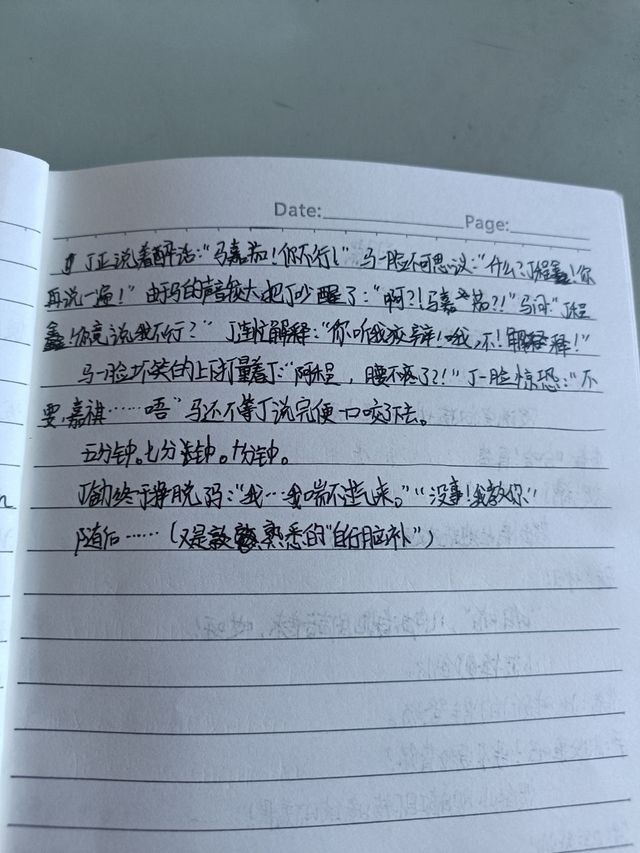 Date: Page:
丁正说着醉话：“马嘉茄！你不行！”马一脸不可思议：“什么？丁程鑫！你
再说一遍！”由于马的声音较大把丁吵醒了：“啊？！马嘉茄？！”马问：“丁程
鑫！你竟说我不行？”丁连忙解释：“你听我狡辩！哦，不！解释！”
马一脸坏笑的上下打量着丁：“阿程，腰不疼了？！”丁一脸惊恐：“不
要，嘉祺……唔”马还不等丁说完便一口咬了下去。
五分钟。七分钟。十分钟。
丁终于挣脱马：“我…我喘不过气来。”“没事！我教你”
随后……（又是熟悉的“自行脑补”）